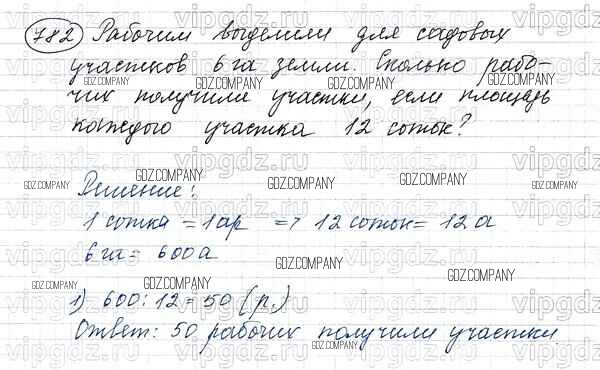 782 Рабочим выделили для садовых
участков 6 га земли. Сколько рабо-
чих получили участки, если площадь
каждого участка 12 соток?
Решение:
1 сотка = 1 ар => 12 соток = 12 а
6 га = 600 а
1) 600 : 12 = 50 (р.)
Ответ: 50 рабочих получили участки